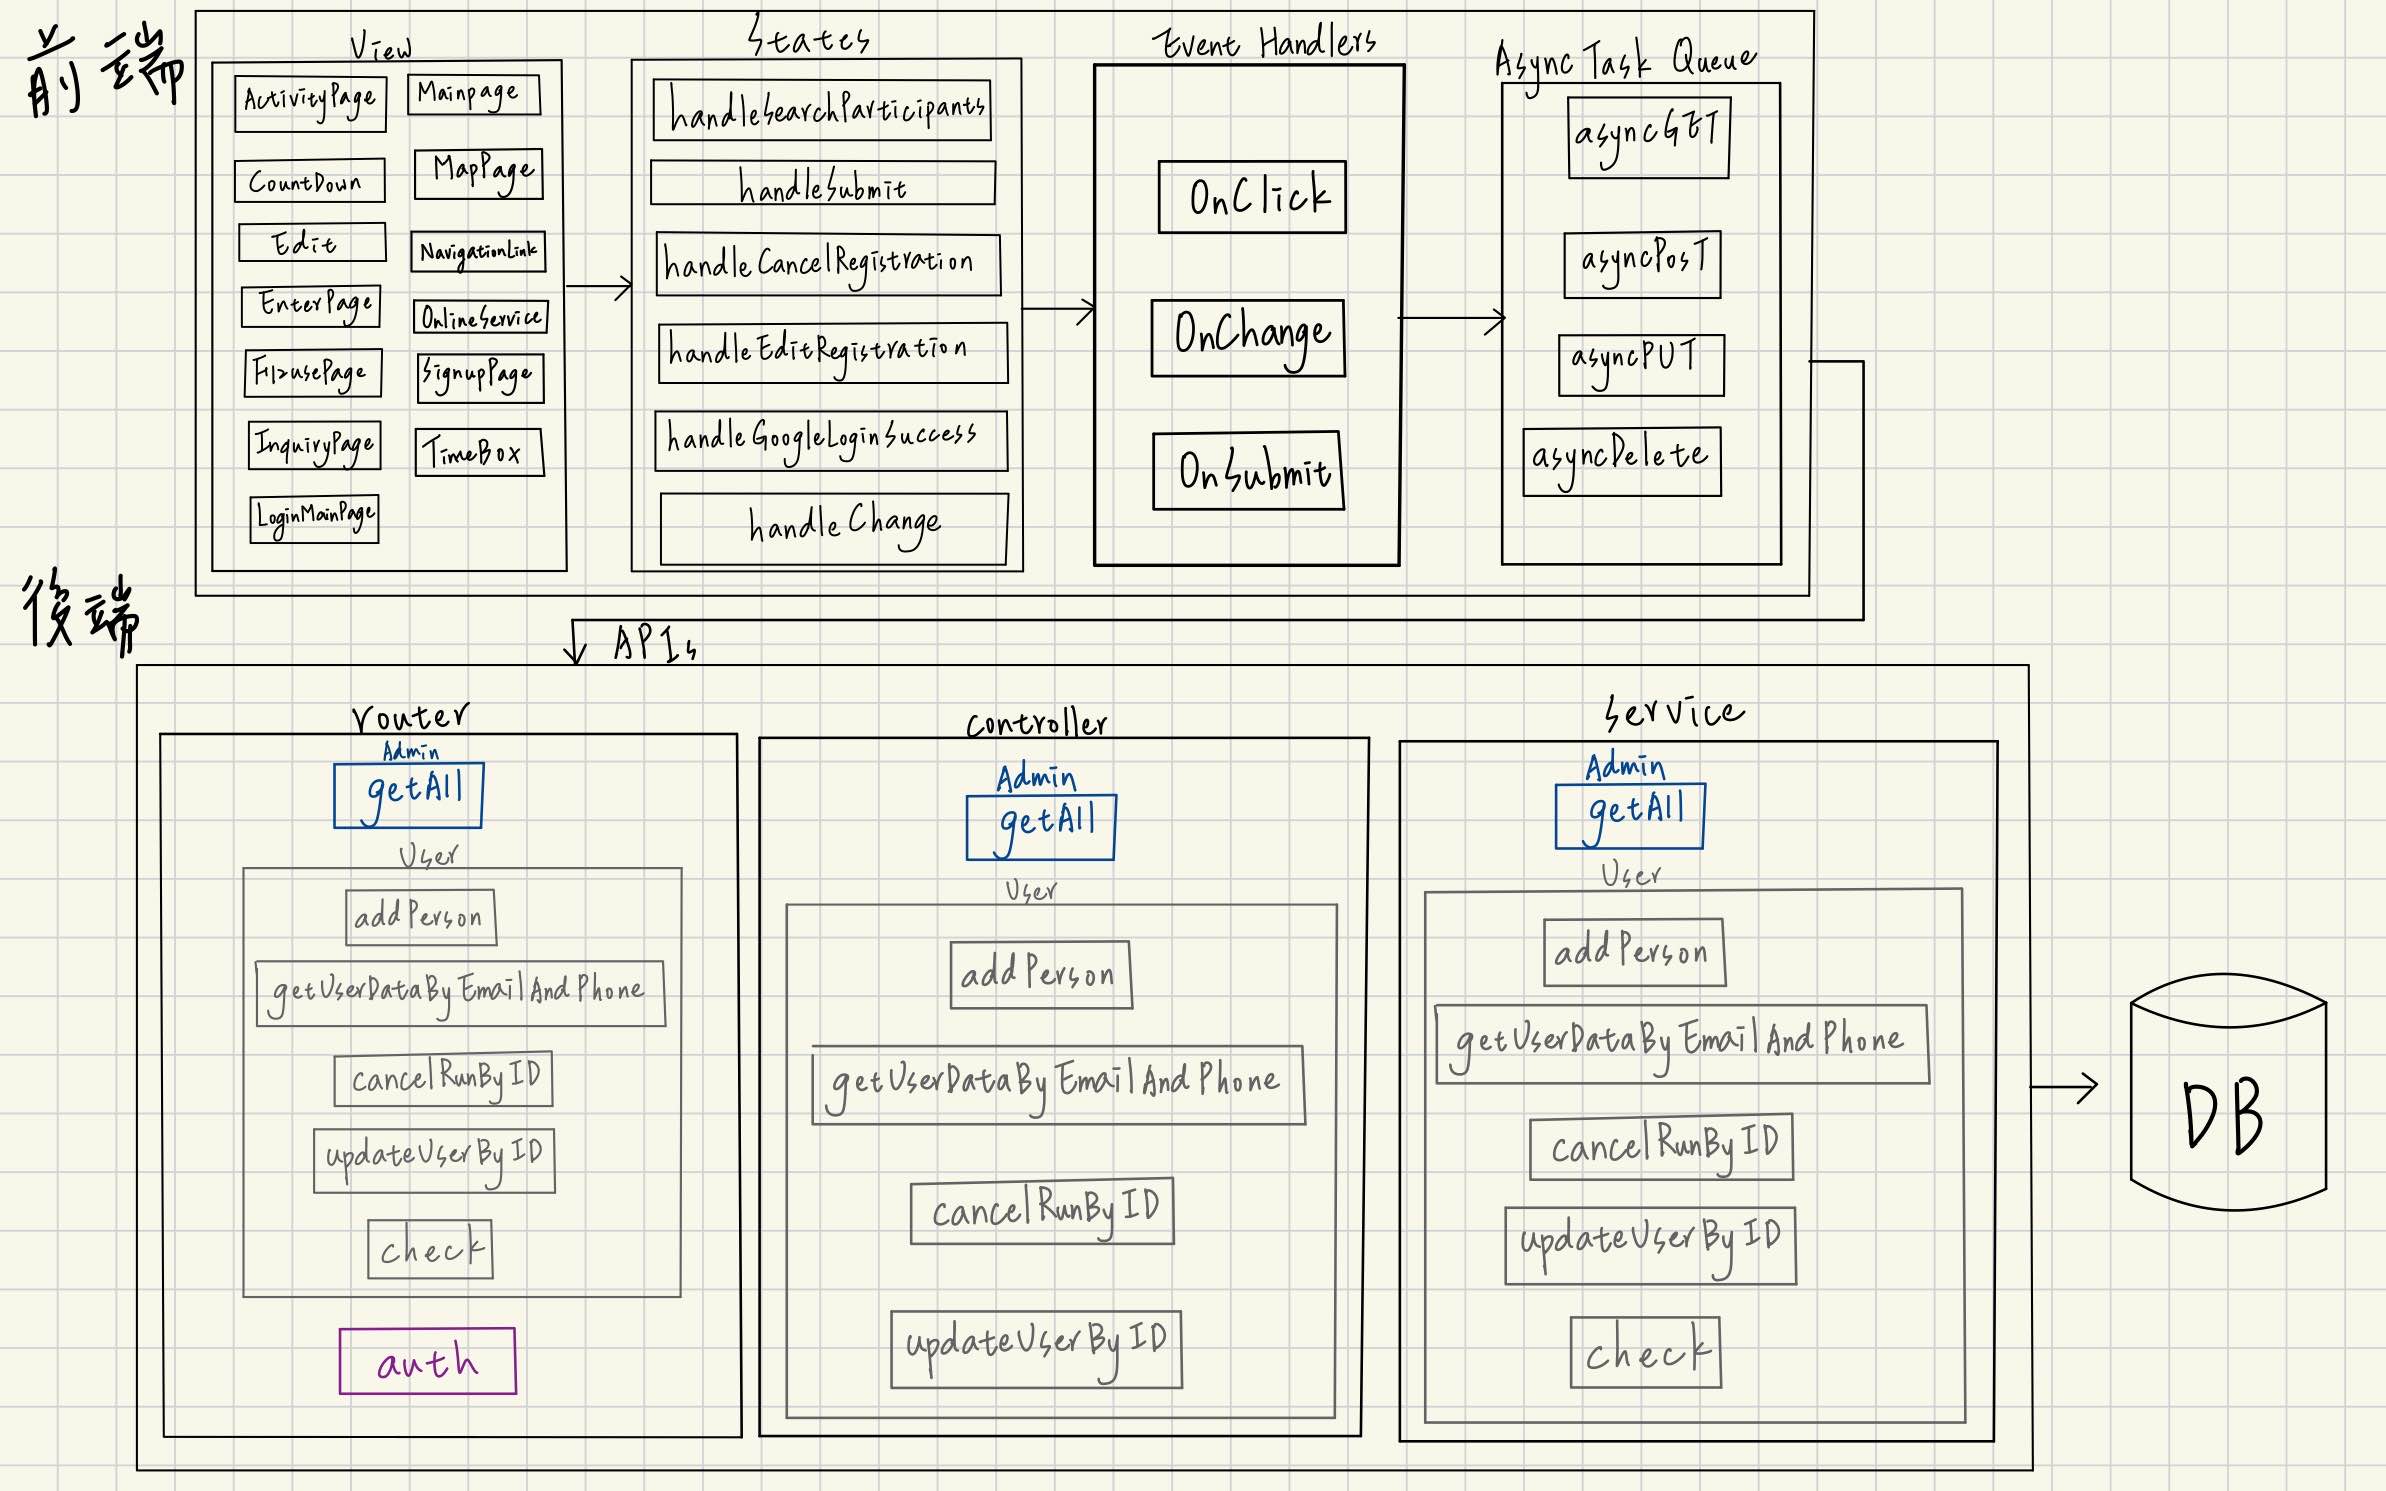 前端
View
ActivityPage
Mainpage
CountDown
MapPage
Edit
NavigationLink
EnterPage
OnlineService
SignupPage
InquiryPage
TimeBox
LoginMainPage
States
handleSearchParticipants
handleSubmit
handleCancelRegistration
handleEditRegistration
handleGoogleLoginSuccess
handleChange
Event Handlers
OnClick
OnChange
OnSubmit
Async Task Queue
asyncGET
asyncPosT
asyncPUT
asyncDelete
後端
APIs
router
Admin
getAll
User
addPerson
getUserDataByEmailAndPhone
cancelRunByID
updateUserByID
check
auth
controller
Admin
getAll
User
addPerson
getUserDataByEmailAndPhone
cancelRunByID
updateUserByID
service
Admin
getAll
User
addPerson
getUserDataByEmailAndPhone
cancelRunByID
updateUserByID
check
DB